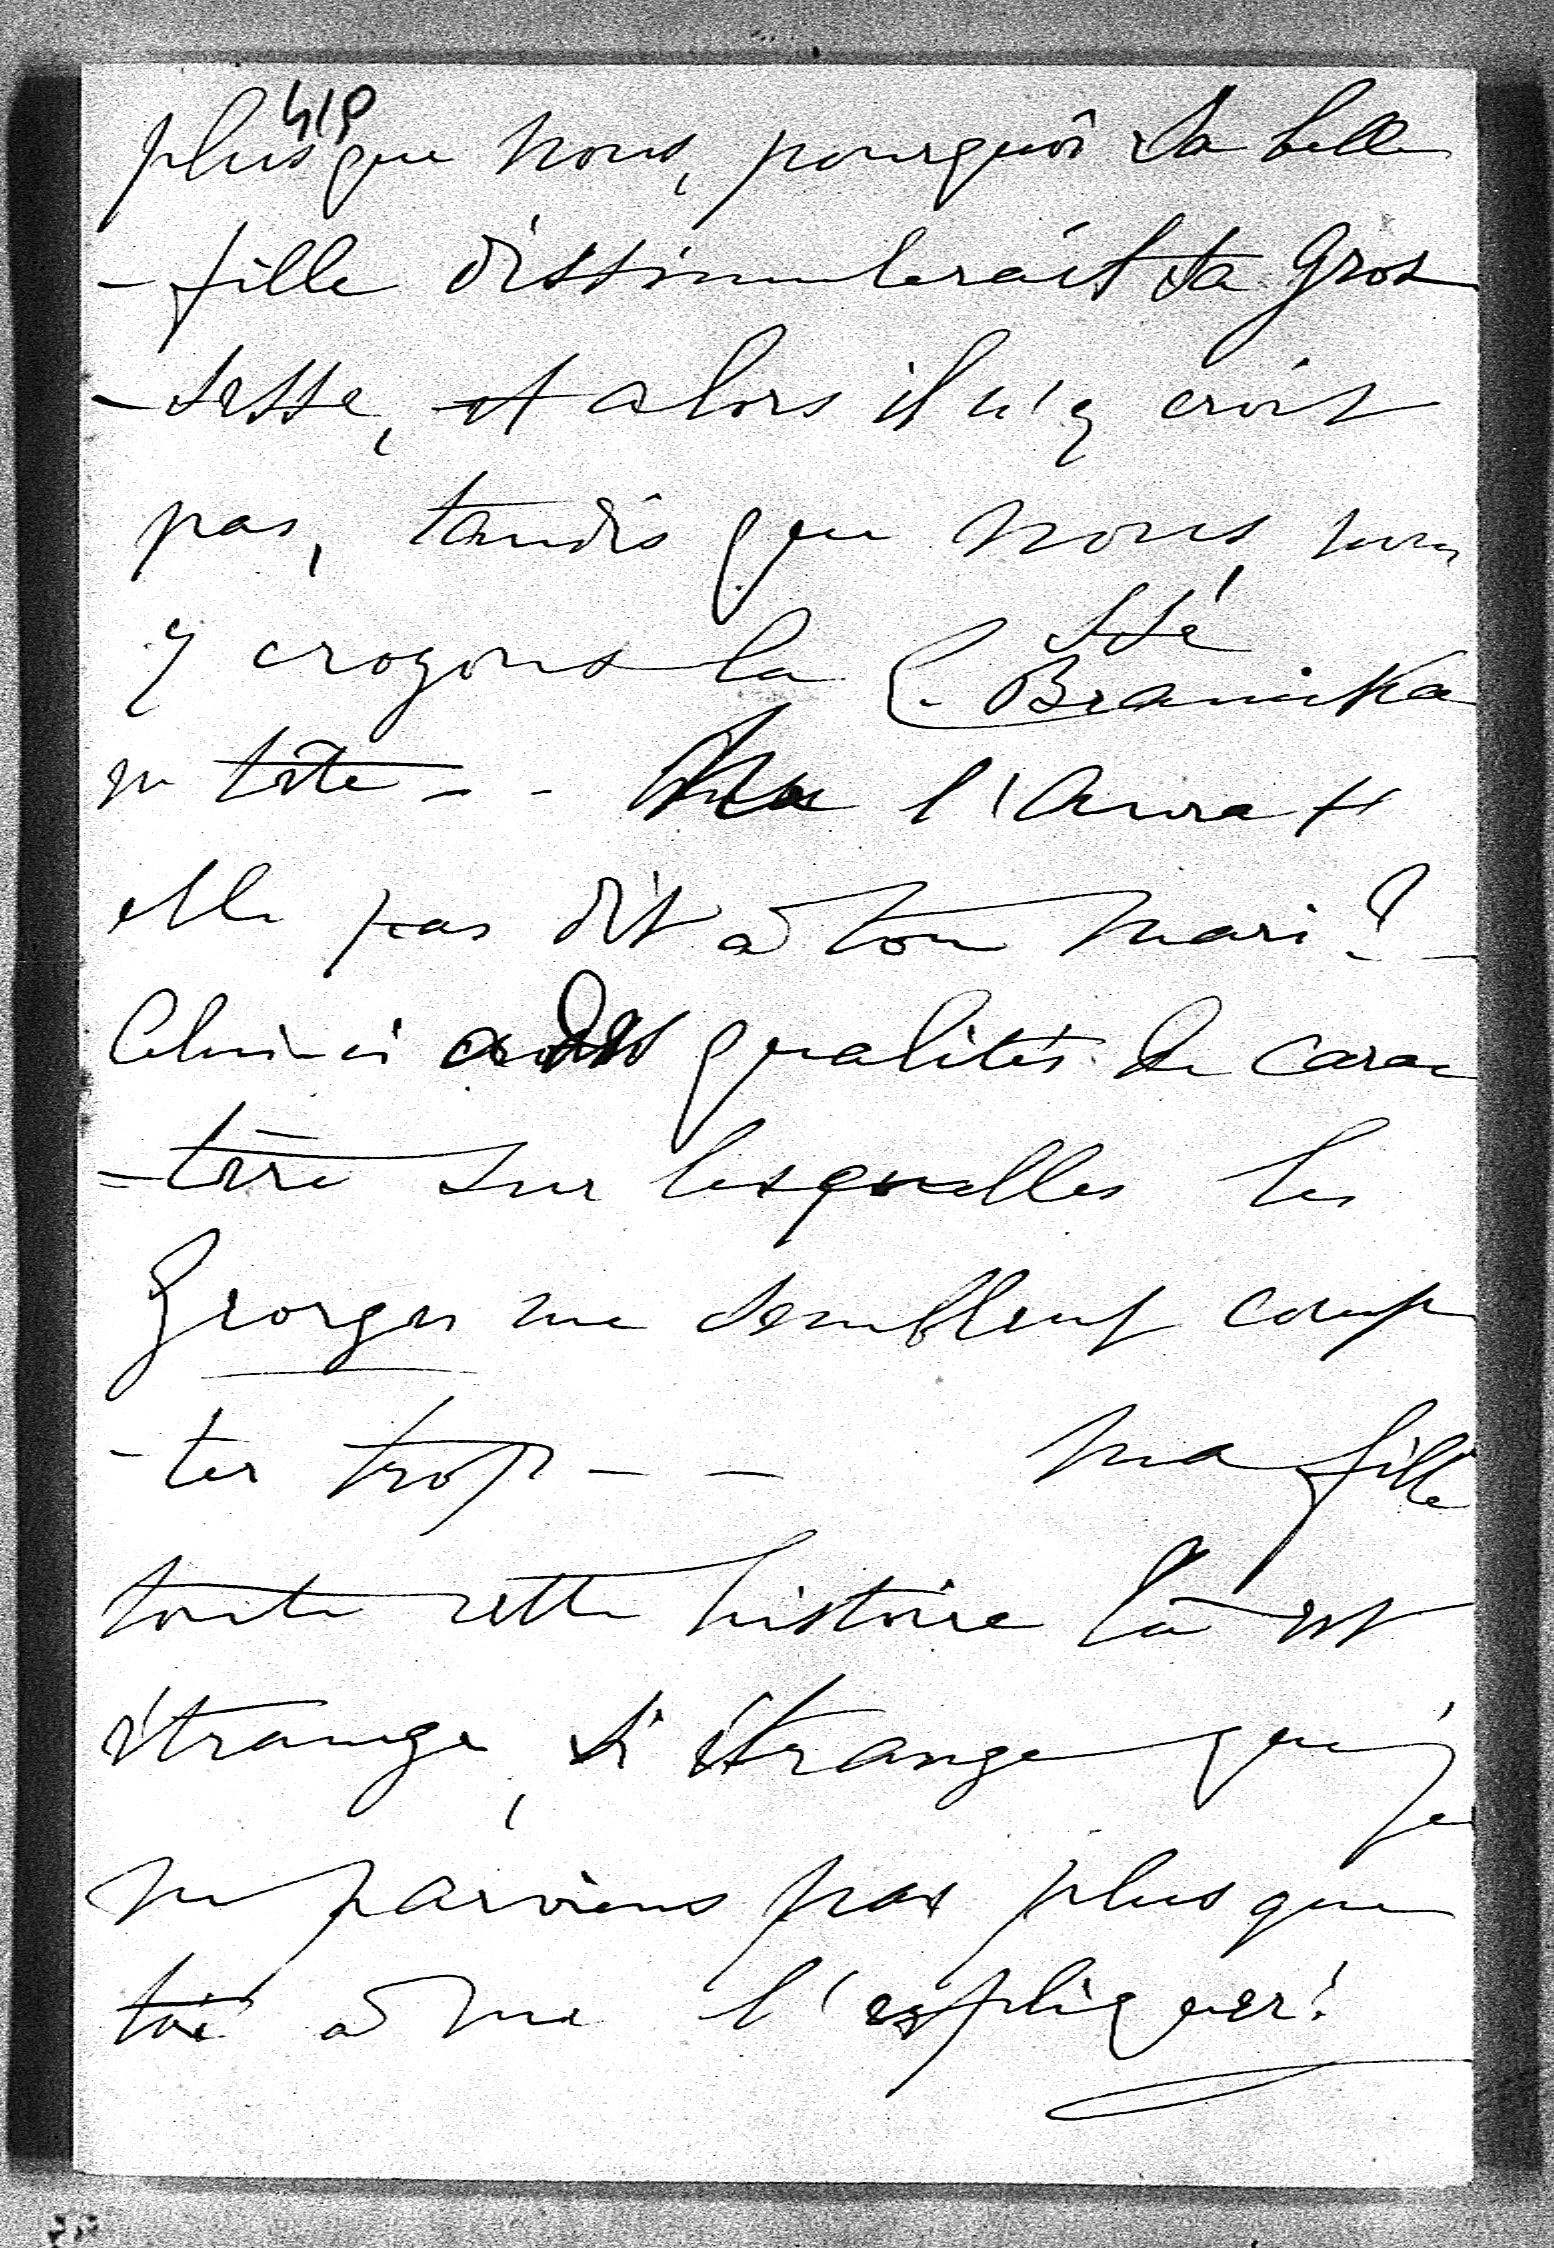 419
plus que nous, pourquoi sa belle
- fille dissimulerait sa gros
- sesse, et alors il n'y croit
pas, tandis que nous, nous
y croyons la Csse Branicka
en tête - - Ne l'aura t
elle pas dit à ton mari? -
Celui-ci a des qualités de carac
- tère sur lesquelles les
Georges me semblent comp
- ter trop - - ma fille
toute cette histoire là est
étrange, si étrange que je
ne parviens pas plus que
toi à me l'expliquer!